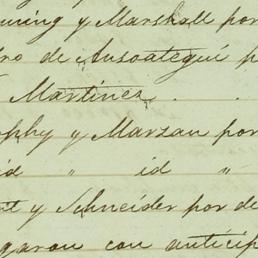 y Marshall por
de Ansoategui p
Martinez . .
phy y Marzan por
id " id "
y Schneider por de
garon con anticip